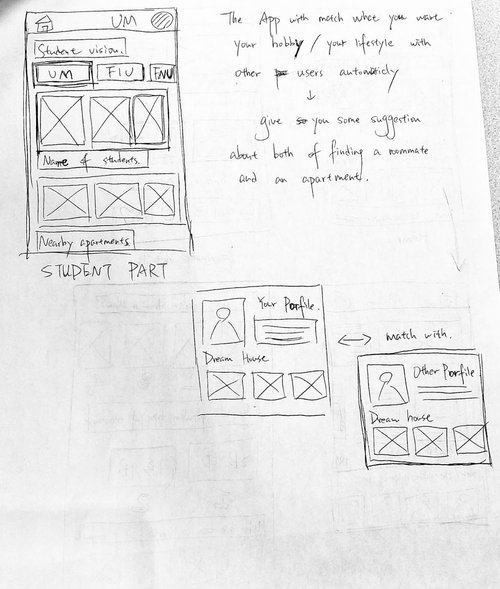 UM
Student vision.
UM FIU FNU
Name of students.
Nearby apartments
STUDENT PART
The App with match what you want
your hobby / your lifestyle with
other users automaticly
give you some suggestion
about both of finding a roommate
and an apartment.
Your Porfile.
Dream House
match with.
Other Porfile
Dream house